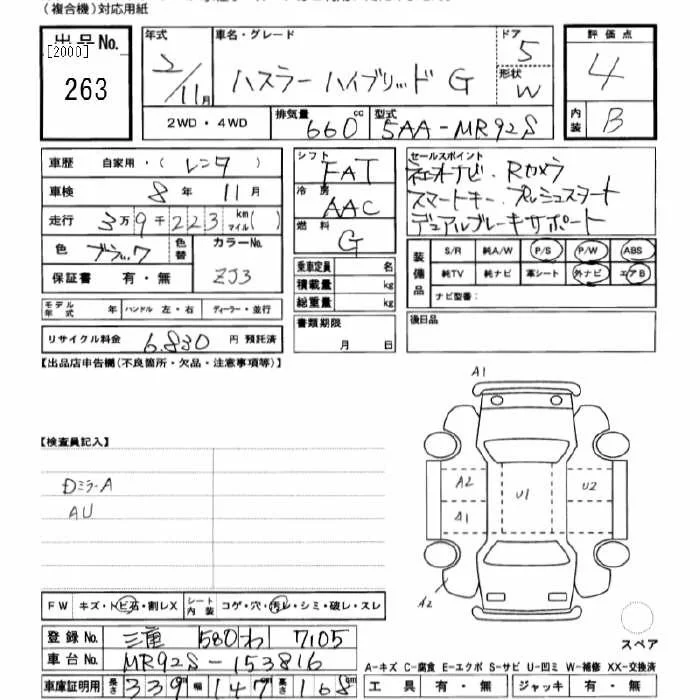 (複合機)対応用紙
出品No. [2000] 263
年式 2/11月
車名・グレード ハスラー ハイブリッド G
ドア 5
形状 W
評価点 4
内装 B
2WD・4WD
排気量 660 cc
型式 5AA-MR92S
車歴 自家用・(レンタ)
車検 8年 11月
走行 3万9千223 km マイル( )
色 ブラック 色替 カラーNo. ZJ3
保証書 有・無
モデル年式 年 ハンドル 左・右 ディーラー・並行
リサイクル料金 6,830 円 預託済
シフト FAT
冷房 AAC
燃料 G
乗車定員 名
積載量 kg
総重量 kg
書類期限 月 日
セールスポイント
社外ナビ・Rカメラ
スマートキー・プッシュスタート
デュアルブレーキサポート
装備品 S/R 純A/W P/S P/W ABS
純TV 純ナビ 革シート 外ナビ エアB
ナビ型番:
後日品
【出品店申告欄(不良箇所・欠品・注意事項等)】
【検査員記入】
Dミラ-A
AU
A1
A2
A1
U1
U2
A2
スペア
FW キズ・トビ石・割レX シート内装 コゲ・穴・汚レ・シミ・破レ・スレ
登録No. 三重 580 わ 7105
車台No. MR92S-153816
車庫証明用 長さ 339 幅 147 高さ 168
A-キズ C-腐食 E-エクボ S-サビ U-凹ミ W-補修 XX-交換済
工具 有・無 ジャッキ 有・無